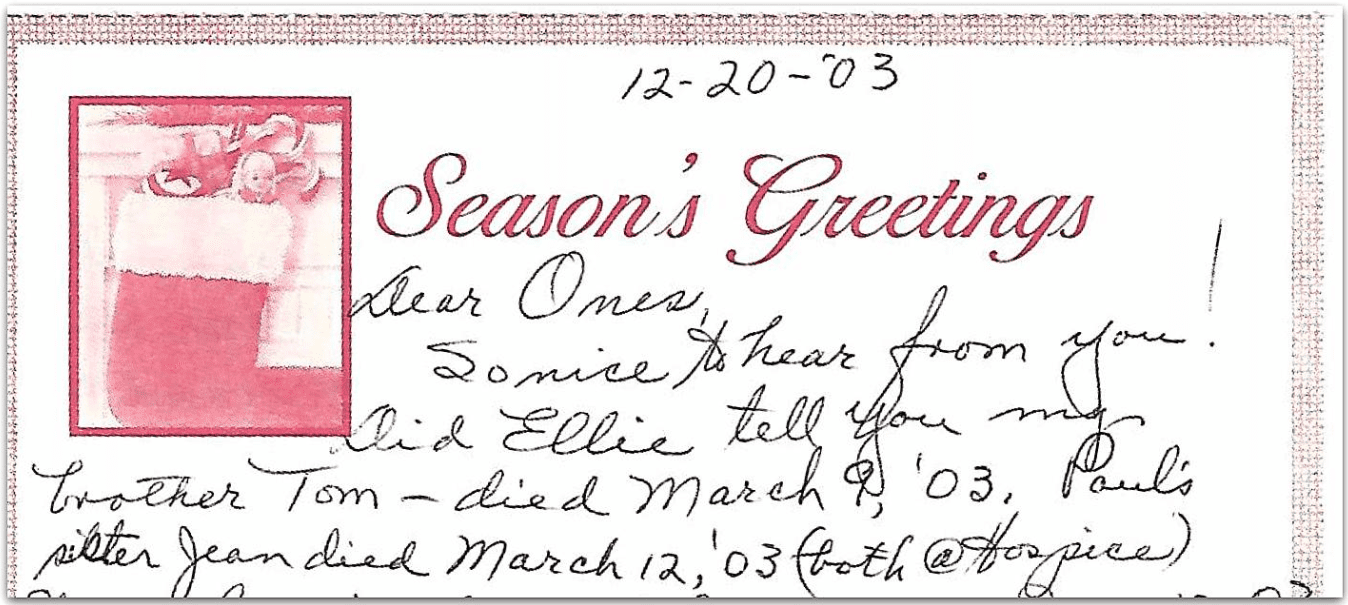 12-20-'03
Season's Greetings
Dear Ones,
So nice to hear from you!
Did Ellie tell you my
brother Tom – died March 9, '03. Paul's
sister Jean died March 12, '03 (both @ Hospice)